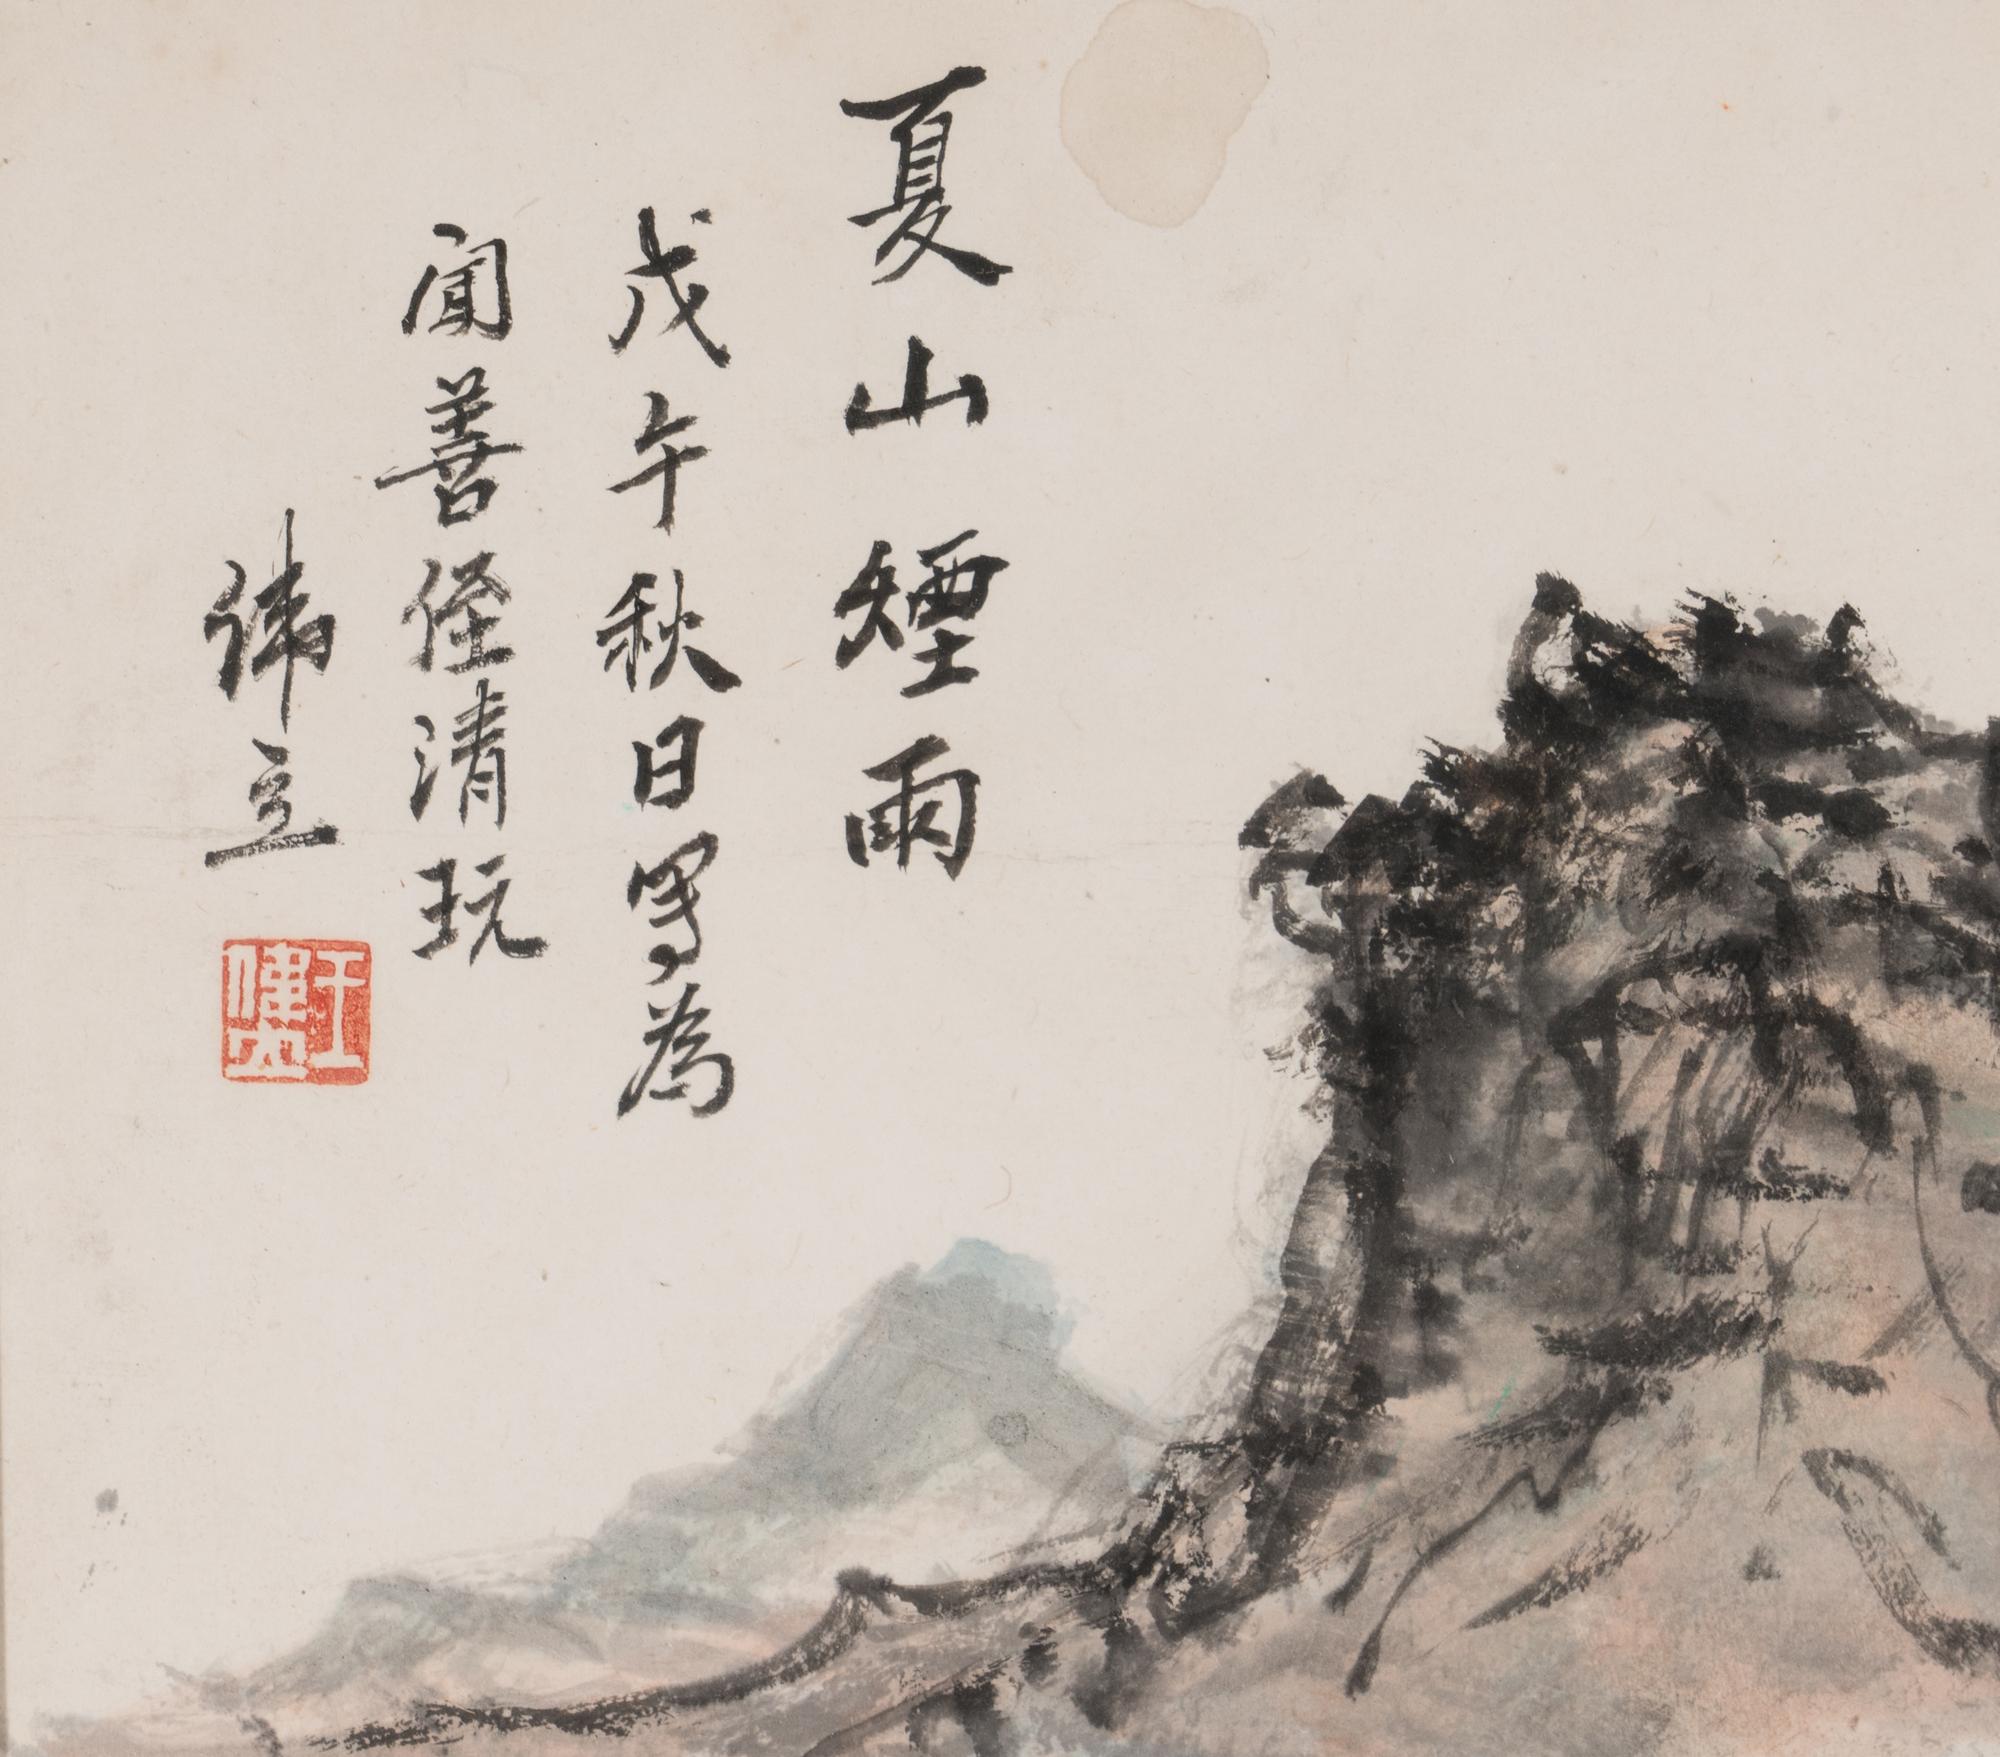 夏山煙雨
戊午秋日寫為
聞善侄清玩
立
王